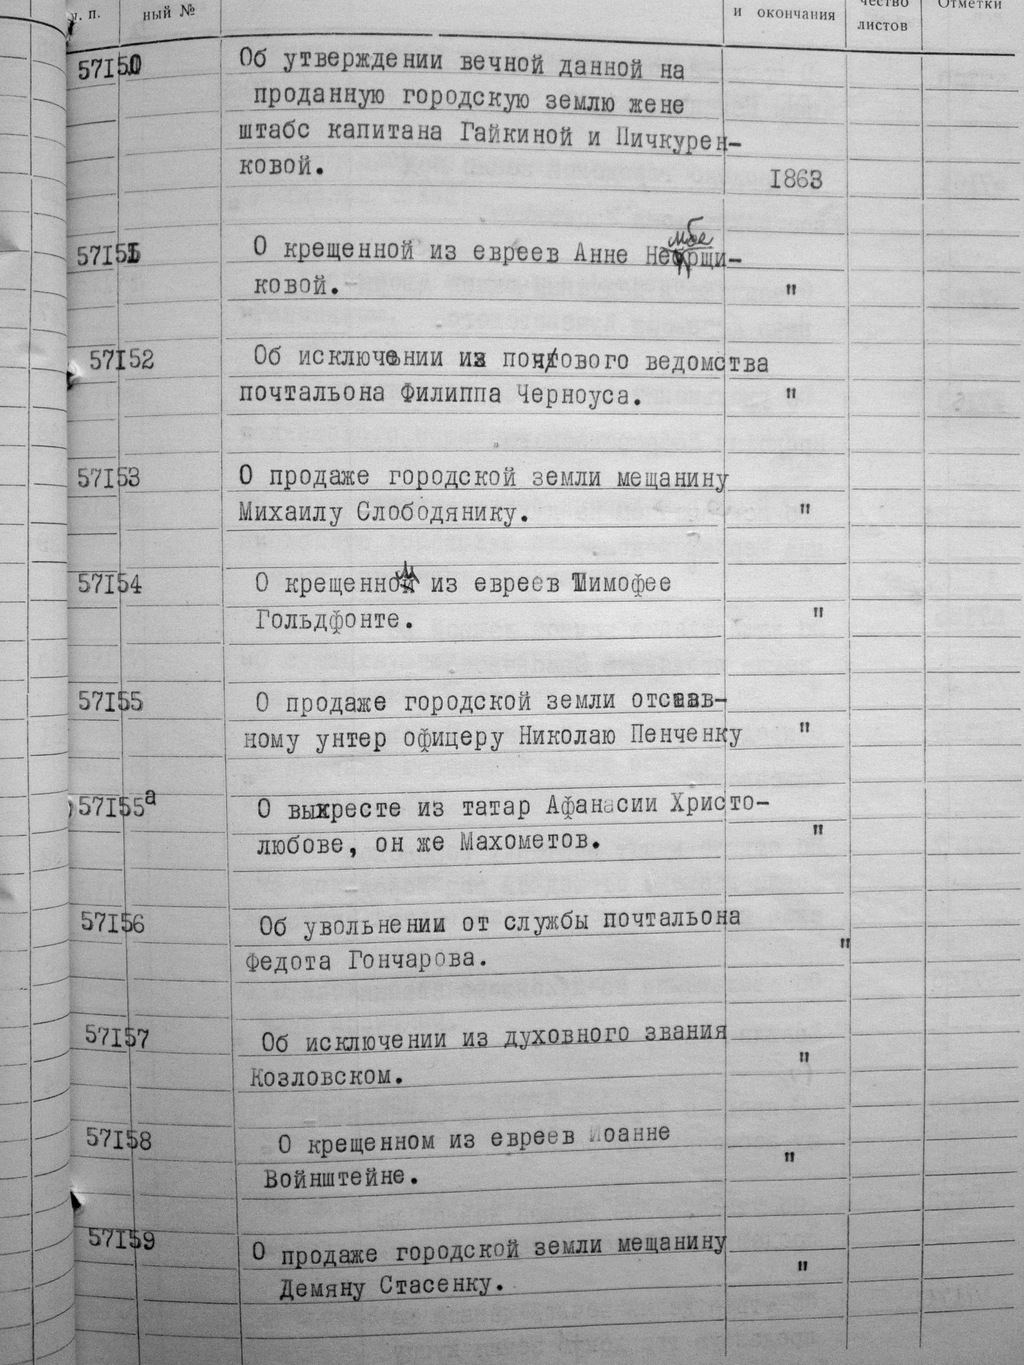 п. п.
ный №
и окончания
чество
листов
Отметки
57150
Об утверждении вечной данной на
проданную городскую землю жене
штабс капитана Гайкиной и Пичкурен-
ковой.
1863
57151
О крещенной из евреев Анне
ковой.
"
57152
Об исключении из почтового ведомства
почтальона Филиппа Черноуса.
"
57153
О продаже городской земли мещанину
Михаилу Слободянику.
"
57154
О крещенном из евреев Тимофее
Гольдфонте.
"
57155
О продаже городской земли отстав-
ному унтер офицеру Николаю Пенченку
"
57155а
О выкресте из татар Афанасии Христо-
любове, он же Махометов.
"
57156
Об увольнении от службы почтальона
Федота Гончарова.
"
57157
Об исключении из духовного звания
Козловском.
"
57158
О крещенном из евреев Иоанне
Войнштейне.
"
57159
О продаже городской земли мещанину
Демяну Стасенку.
"